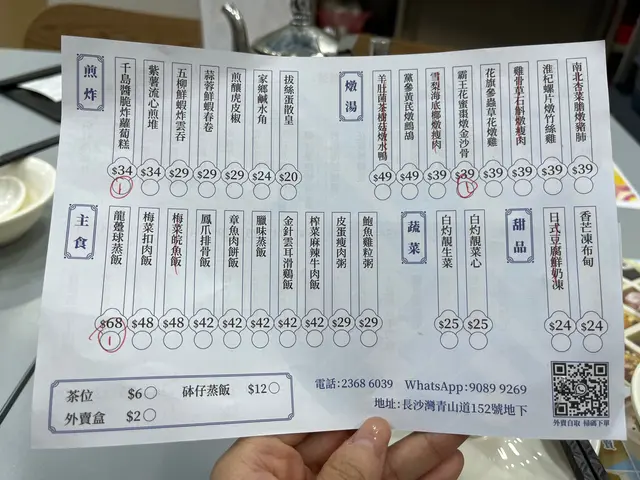 煎炸
千島醬脆炸蘿蔔糕
$34
1
紫薯流心煎堆
$34
五柳鮮蝦炸雲吞
$29
蒜蓉鮮蝦春卷
$29
煎釀虎皮椒
$29
家鄉鹹水角
$24
拔絲蛋散皇
$20
燉湯
羊肚菌茶樹菇燉水鴨
$49
黨參黃芪燉鷓鴣
$49
雪梨海底椰燉瘦肉
$39
霸王花蜜棗燉金沙骨
$39
1
花旗參蟲草花燉雞
$39
雞骨草石斛燉瘦肉
$39
淮杞螺片燉竹絲雞
$39
南北杏菜膽燉豬肺
$39
主食
龍躉球蒸飯
$68
1
梅菜扣肉飯
$48
梅菜皖魚飯
$48
鳳爪排骨飯
$42
章魚肉餅飯
$42
臘味蒸飯
$42
金針雲耳滑鷄飯
$42
榨菜麻辣牛肉飯
$42
皮蛋瘦肉粥
$29
鮑魚雞粒粥
$29
蔬菜
白灼靚生菜
$25
白灼靚菜心
$25
甜品
日式豆腐鮮奶凍
$24
香芒凍布甸
$24
茶位 $6 砵仔蒸飯 $12
外賣盒 $2
電話:2368 6039 WhatsApp:9089 9269
地址:長沙灣青山道152號地下
外賣自取 掃碼下單